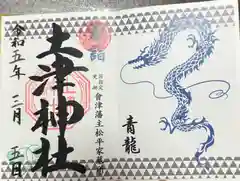 青龍
詣
會津藩主松平家墓所
土津神社
令和五年
二月
五日